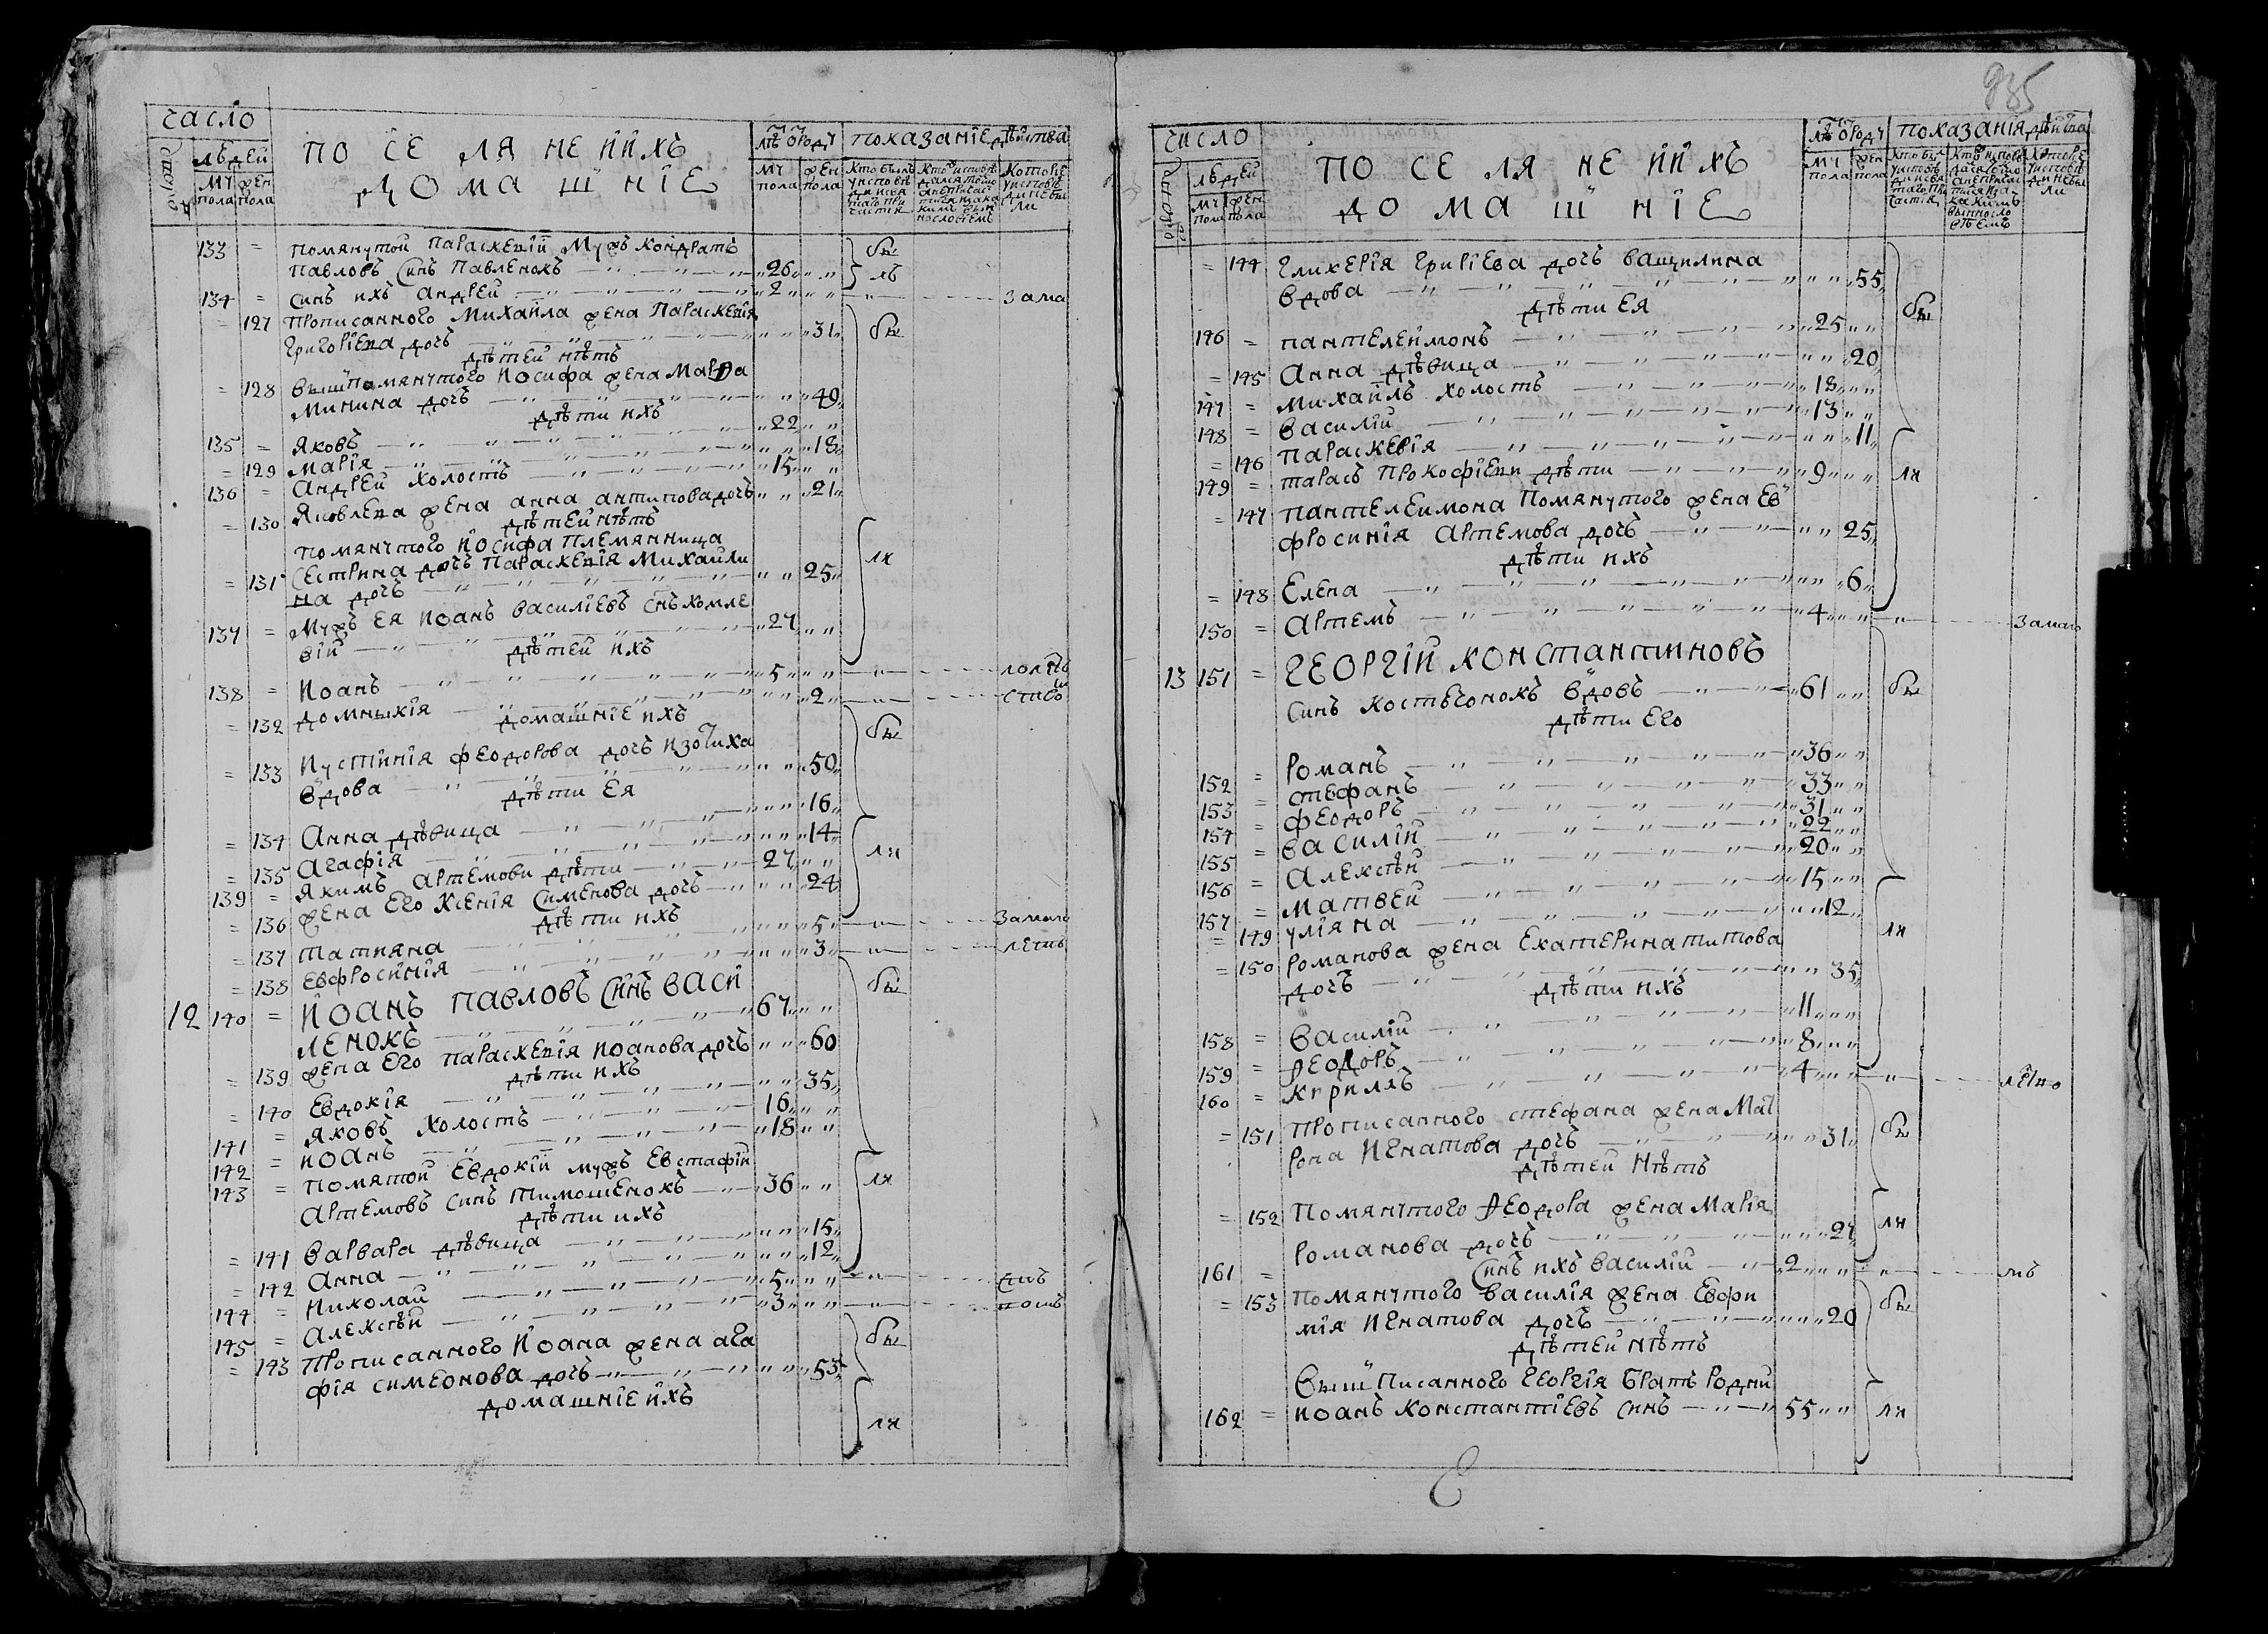 число
людей
муж пола
жен пола
поселяне и ихъ
домашніе
лѣтъ отъ роду
муж пола
жен пола
показаніе действа
133 = помянутой параскевій мужъ кондратъ
павловъ синъ павленокъ 26 бы
134 = синъ ихъ андрей 2 ль за ма
= 127 прописанного михайла жена параскевія
григоріева дочь 31 бы
дѣтей нѣтъ
= 128 вышпомянутого иосифа жена марѳа
минина дочь 49
дѣти ихъ
135 = яковъ 22
= 129 марія 18
136 = андрей холостъ 15
= 130 яковлева жена анна антиповадочь 21
дѣтей нѣтъ
помянутого иосифа племянница
= 131 сестрина дочь параскевія михаили
на дочь 25 ли
137 = мужъ ея иоанъ василіевъ снъ хомле
вій 27
дѣтей ихъ
138 = иоанъ 5
= 132 домникія 2
домашніе ихъ
= 133 иустінія феодорова дочь изотиха
вдова 50 бы
дѣти ея
= 134 анна дѣвица 16
= 135 агафія 14
139 = якимъ артемови дѣти 27 ли
= 136 жена его ксенія сименова дочь 24
дѣти ихъ
= 137 татияна 5 за мало
= 138 евфросинія 3 летъ
12 140 = иоанъ павловъ синъ васи
ленокъ 67 бы
= 139 жена его параскевія иоановадочь 60
дѣти ихъ
= 140 евдокія 35
141 = яковъ холостъ 16
142 = иоанъ 18
143 = помятой евдокій мужъ евстафій
артемовъ синъ тимошенокъ 36 ли
дѣти ихъ
= 141 варвара дѣвица 15
= 142 анна 12
144 = николай 5
145 = алексѣй 3
= 143 прописанного иоана жена ага
фія симеонова дочь 53 бы
домашніе ихъ
ли
935
число
людей
муж пола
жен пола
поселяне и ихъ
домашніе
лѣтъ отъ роду
муж пола
жен пола
показанія действа
= 144 гликерія григіева дочь ващилина
вдова 55
дѣти ея бы
146 = пантелеймонъ 25
= 145 анна дѣвица 20
147 = михаилъ холостъ 18
148 = василій 13
= 146 параскевія 11
149 = тарасъ прокофіеви дѣти 9 ли
= 147 пантелеимона помянутого жена ев
фросинія артемова дочь 25
дѣти ихъ
= 148 елена 6
150 = артемъ 4 за мало
13 151 = георгій константиновъ
синъ костюченокъ вдовъ 61 бы
дѣти его
152 = романъ 36
153 = стефанъ 33
154 = феодоръ 31
155 = василій 22
156 = алексѣй 20
157 = матвей 15
= 149 уліяна 12 ли
= 150 романова жена екатерина титова
дочь 35
дѣти ихъ
158 = василій 11
159 = ѳеодоръ 8
160 = кирилъ 4
= 151 прописанного стефана жена мат
рона игнатова дочь 31 бы
дѣтей нѣтъ
= 152 помянутого ѳеодора жена марія
романова дочь 27 ли
161 = синъ ихъ василий 2
= 153 помянутого василія жена евфи
мія игнатова дочь 20 бы
дѣтей нѣтъ
выш писанного георгія братъ родни
162 = иоанъ константіевъ синъ 55 ли